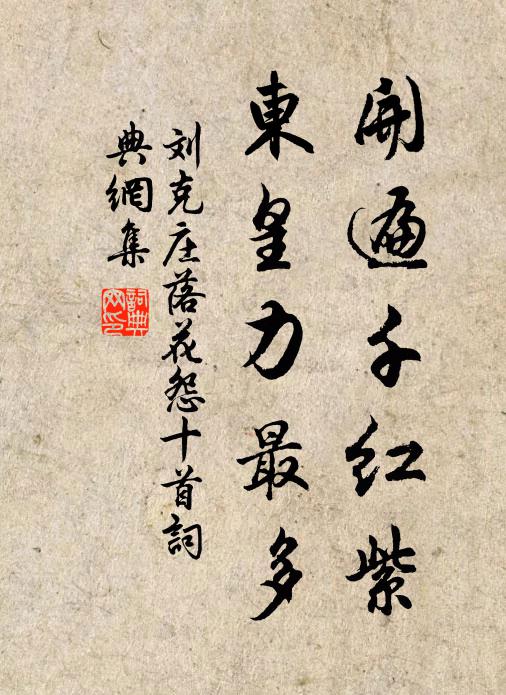 開遍千红紫
東皇力最多
刘克庄落花怨十首詞
典網集
詞典
网印